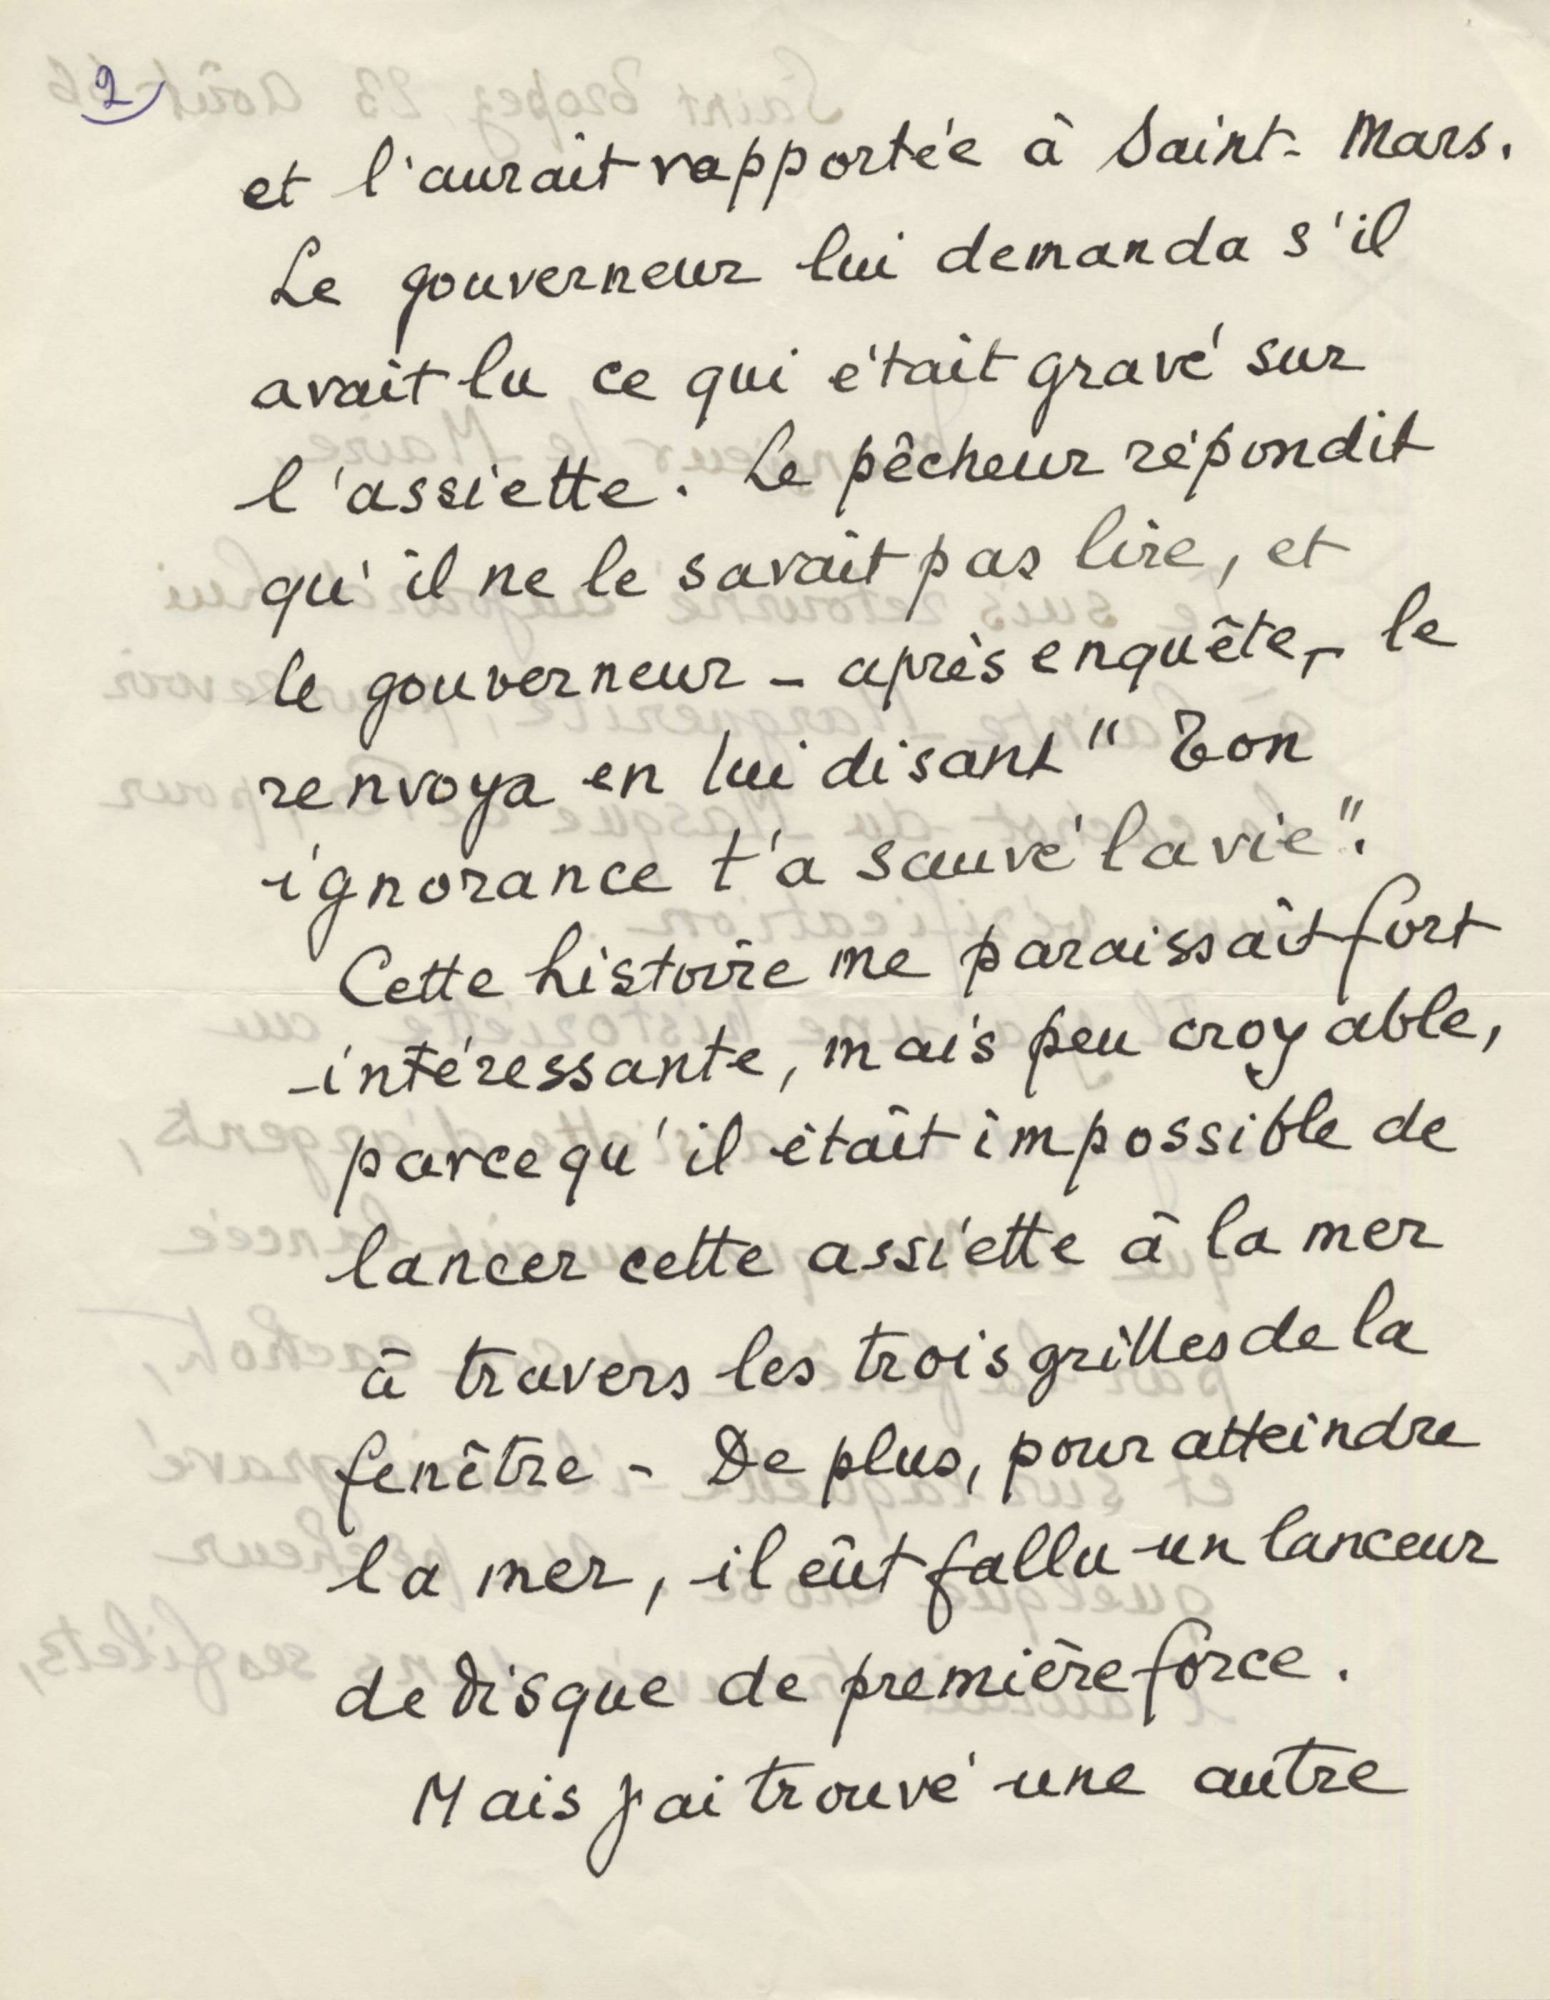 2
et l'aurait rapportée à Saint-Mars.
Le gouverneur lui demanda s'il
avait lu ce qui était gravé sur
l'assiette. Le pêcheur répondit
qu'il ne le savait pas lire, et
le gouverneur - après enquête, - le
renvoya en lui disant "Ton
ignorance t'a sauvé la vie".
Cette histoire me paraissait fort
intéressante, mais peu croyable,
parce qu'il était impossible de
lancer cette assiette à la mer
à travers les trois grilles de la
fenêtre - De plus, pour atteindre
la mer, il eût fallu un lanceur
de disque de première force.
Mais j'ai trouvé une autre